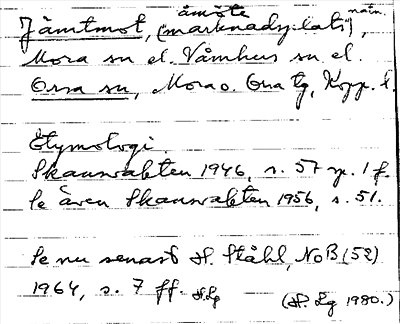 åmöte natn.
Jämtmot, (marknadsplats),
Mora sn el. Våmhus sn el.
Orsa sn, Mora o. Orsa tg, Kopp. l.
Etymologi.
Skansvakten 1946, s. 57 sp. 1 f.
Se även Skansvakten 1956, s. 51.
Se nu senast H. Ståhl, NoB (52)
1964, s. 7 ff. H.Lg
(H. Lg 1980.)